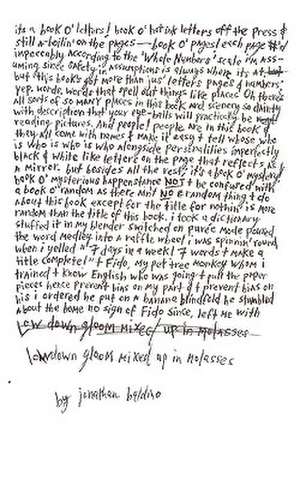 its a book o' letters! book o' hot ink letters off the press &
still a-boilin' on the pages—book o' pages! each page #'d
impeccably according to the 'Whole Numbers' scale i'm ass-
uming since safety in assumptions is always where its at,
but this book's got more than jus' letters pages & numbers-
yep, words, words that spell out things like places. Oh there's
all sorts of so MANY places in this book and scenery so dainty
with description that your eye-balls will practically be
reading pictures. And people! people are in this book &
they all come with names & make it easy t tell whose who
is who is who is who alongside personalities imperfectly
black & white like letters on the page that reflects as
a mirror. but besides all the rest, it's a book o' mystery!
book o' mysterious happenstance NOT t be confused with
a book o' random as there aint NO random thing t do
about this book except for the title for nothin' is more
random than the title of this book. i took a dictionary
stuffed it in my blender switched on pureé mode poured
the word medley into a raffle wheel i was spinnin' round
when i yelled a "7 days in a week! 7 words t make a
title complete!" t Fido, my pet tree monkey whom i
trained t know English who was going t pull the paper
pieces hence prevent bias on my part & t prevent bias on
his i ordered he put on a banana blindfold he stumbled
about the home no sign of Fido since, left me with
Low down gloom mixed up in molasses
lowdown gloom mixed up in molasses
by jonathan baldino